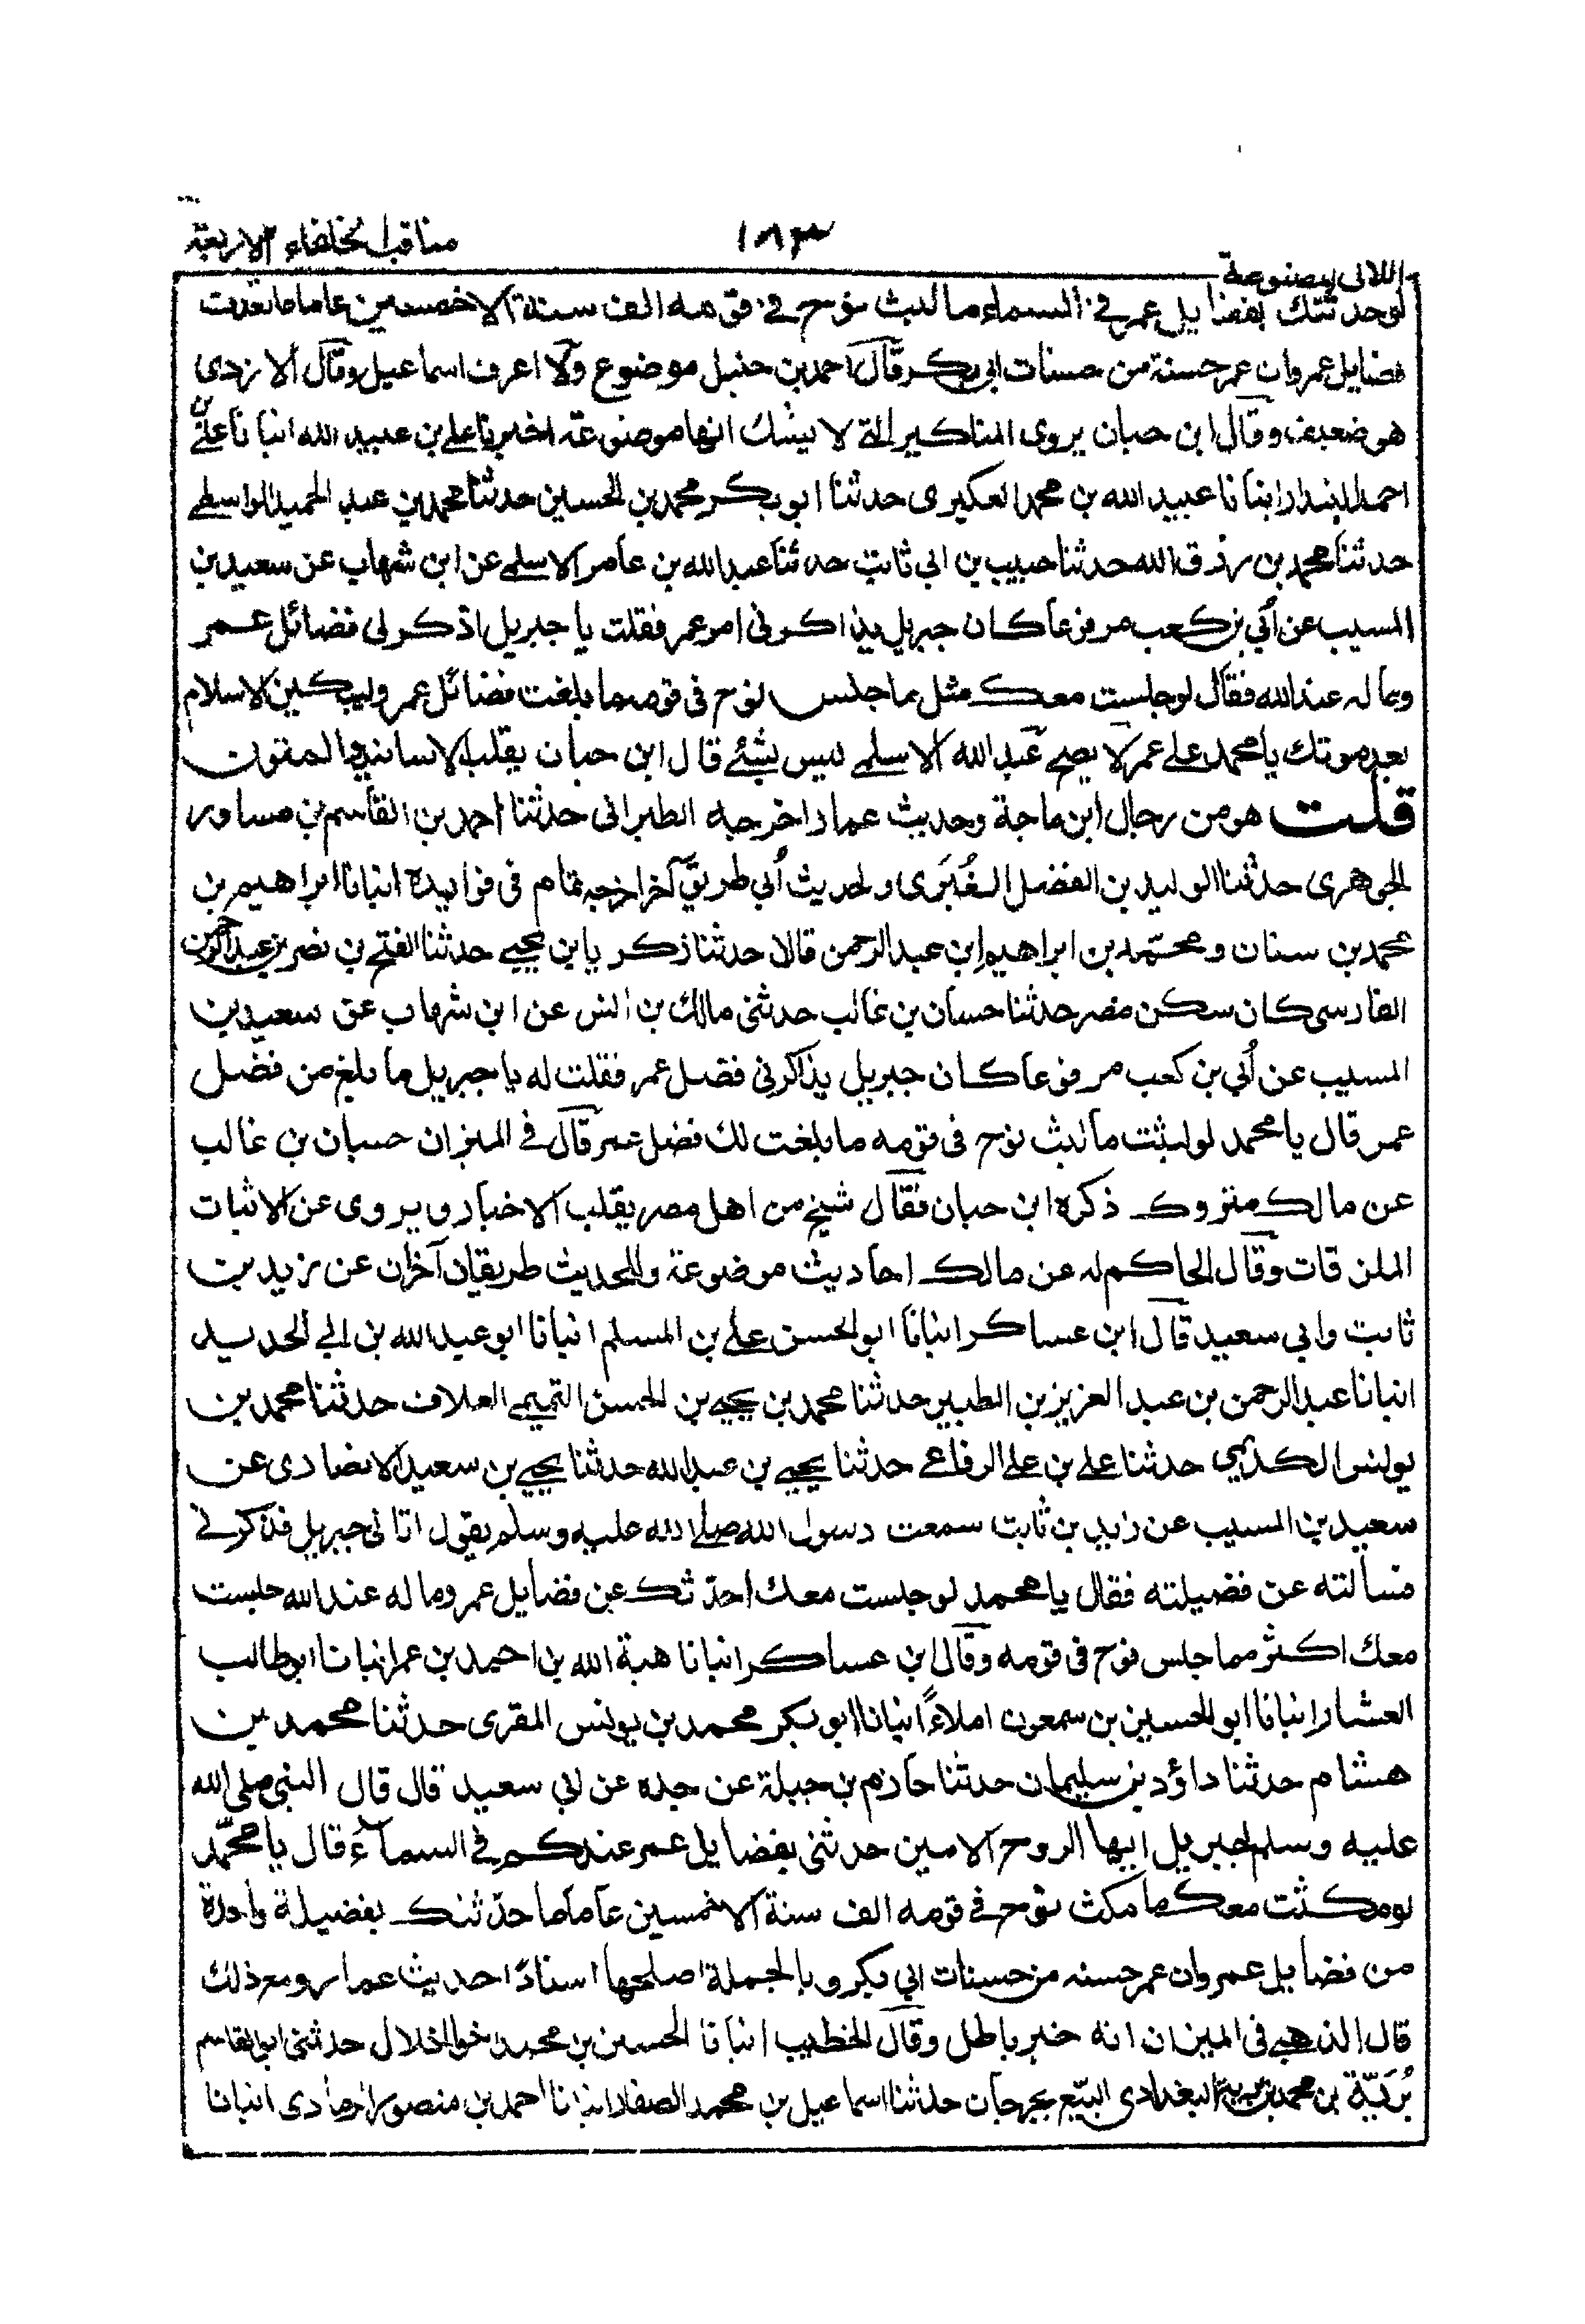 مناقب الخلفاء الاربعة
١٨٣
اللالى المصنوعة
لوحدثتك بفضايل عمر في السماء ما لبث نوح في قومه الف سنة الا خمسين عاما ما نفدت
فضايل عمر وان عمر حسنة من حسنات ابي بكر قال احمد بن حنبل موضوع ولا اعرف اسماعيل وقال الازدى
هو ضعيف وقال ابن حبان يروى المناكير التى لا يشك انها موضوعة اخبرنا على بن عبيد الله انبانا على بن
احمد البندار انبانا عبيد الله بن محمد العكبرى حدثنا ابو بكر محمد بن الحسين حدثنا محمد بن عبد الحميد الواسطے
حدثنا محمد بن رزق الله حدثنا حبيب بن ابي ثابت حدثنا عبد الله بن عامر الاسلمے عن ابن شهاب عن سعيد بن
المسيب عن أبي بن كعب مرفوعا كان جبريل يذاكرنى امر عمر فقلت يا جبريل اذكر لى فضائل عمر
وما له عند الله فقال لو جلست معك مثل ما جلس نوح فى قومه ما بلغت فضائل عمر وليبكين الاسلام
بعد موتك يا محمد على عمر لا يصح عبد الله الاسلمے ليس بشئے قال ابن حبان يقلب الاسانيد والمتون
قلت هو من رجال ابن ماجة وحديث عمار اخرجه الطبرانى حدثنا احمد بن القاسم بن مساور
الجوهرى حدثنا الوليد بن الفضل العُنَزى ولحديث أبي طريق آخر اخرجه تمام فى فوايده انبانا ابراهيم بن
محمد بن سنان ومحمد بن ابراهيم ابن عبد الرحمن قالا حدثنا زكريا بن يحيے حدثنا الفتح بن نصر بن عبد الرحمن
الفارسى كان سكن مصر حدثنا حسان بن غالب حدثنى مالك بن انس عن ابن شهاب عن سعيد بن
المسيب عن أبي بن كعب مرفوعا كان جبريل يذاكرنى فضل عمر فقلت له يا جبريل ما بلغ من فضل
عمر قال يا محمد لو لبثت ما لبث نوح فى قومه ما بلغت لك فضل عمر قال فے الميزان حسان بن غالب
عن مالك متروك ذكره ابن حبان فقال شيخ من اهل مصر يقلب الاخبار ويروى عن الاثبات
الملزقات وقال الحاكم له عن مالك احاديث موضوعة وللحديث طريقان آخران عن زيد بن
ثابت وابي سعيد قال ابن عساكر انبانا ابو الحسن على بن المسلم انبانا ابو عبد الله بن ابي الحديد
انبانا عبد الرحمن بن عبد العزيز بن الطبير حدثنا محمد بن يحيے بن الحسن التميمے العلاف حدثنا محمد بن
يونس الكديمي حدثنا على بن على الرفاعے حدثنا يحيے بن عبد الله حدثنا يحيے بن سعيد الانصارى عن
سعيد بن المسيب عن زيد بن ثابت سمعت رسول الله صلے الله عليه وسلم يقول اتانى جبريل فذكر لے
فسألته عن فضيلته فقال يا محمد لو جلست معك احدثك عن فضايل عمر وما له عند الله جلست
معك اكثر مما جلس نوح فى قومه وقال ابن عساكر انبانا هبة الله بن احمد بن عمر انبانا ابو طالب
العشار انبانا ابو الحسين بن سمعون املاءً انبانا ابو بكر محمد بن يونس المقرى حدثنا محمد بن
هشام حدثنا داؤد بن سليمان حدثنا حازم بن جبلة عن جده عن ابي سعيد قال قال النبى صلى الله
عليه وسلم لجبريل ايها الروح الامين حدثنى بفضايل عمر عندكم فے السمآء قال يا محمّد
لو مكثت معك ما مكث نوح فے قومه الف سنة الا خمسين عاما ما حدثتك بفضيلة واحدة
من فضايل عمر وان عمر حسنه من حسنات ابي بكر وبالجملة اصلحها اسنادًا حديث عمار ومع ذلك
قال الذهبے فى الميزان انه خبر باطل وقال الخطيب انبانا الحسين بن محمد اخو الخلال حدثنى ابو القاسم
بُرَيّة بن محمد بن بريّة البغدادى البيّع بجرجان حدثنا اسماعيل بن محمد الصفار انبانا احمد بن منصور الرمادى انبانا